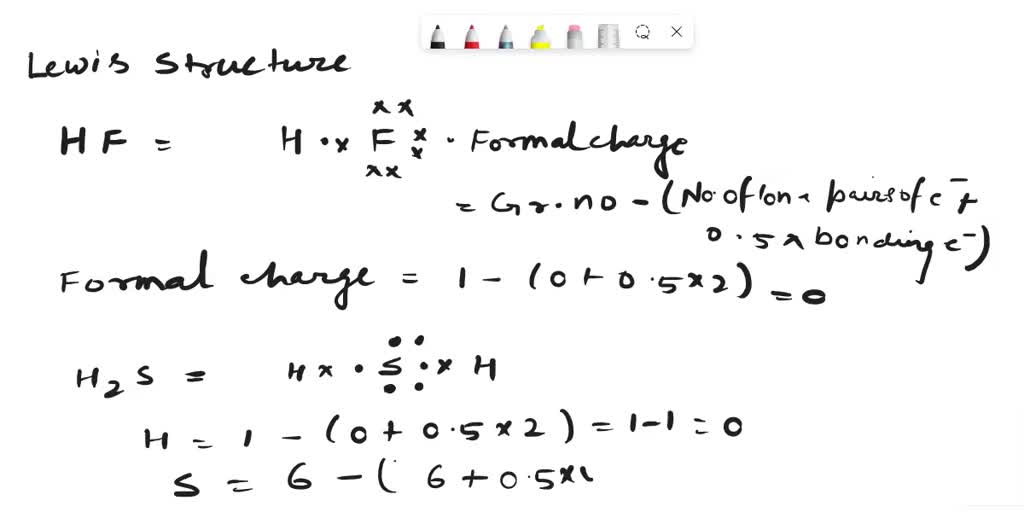 Lewis Structure
xx
HF = H · x F x x · Formal charge
xx
= Gr. no - (No. of lone pairs of e⁻ +
0.5 x bonding e⁻)
Formal charge = 1 - (0 + 0.5 x 2) = 0
H₂S = H x · S · x H
H = 1 - (0 + 0.5 x 2) = 1-1 = 0
S = 6 - ( 6 + 0.5 x